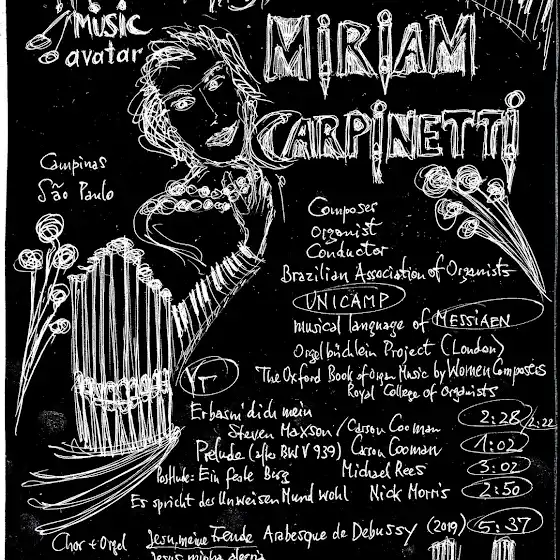 Music
avatar
MIRIAM
CARPINETTI
Campinas
São Paulo
Composer
Organist
Conductor
Brazilian Association of Organists
UNICAMP
musical language of MESSIAEN
Orgelbüchlein Project (London)
The Oxford Book of Organ Music by Women Composers
Royal College of Organists
YT
Erbarm' dich mein
Steven Maxson / Carson Cooman 2:28 2:22
Prelude (after BWV 939) Carson Cooman 1:02
Postlude: Ein feste Burg Michael Rees 3:02
Es spricht des Unweisen Mund wohl Nick Morris 2:50
Chor + Orgel Jesu, meine Freude Arabesque de Debussy (2019) 5:37
Jesus minha alegria